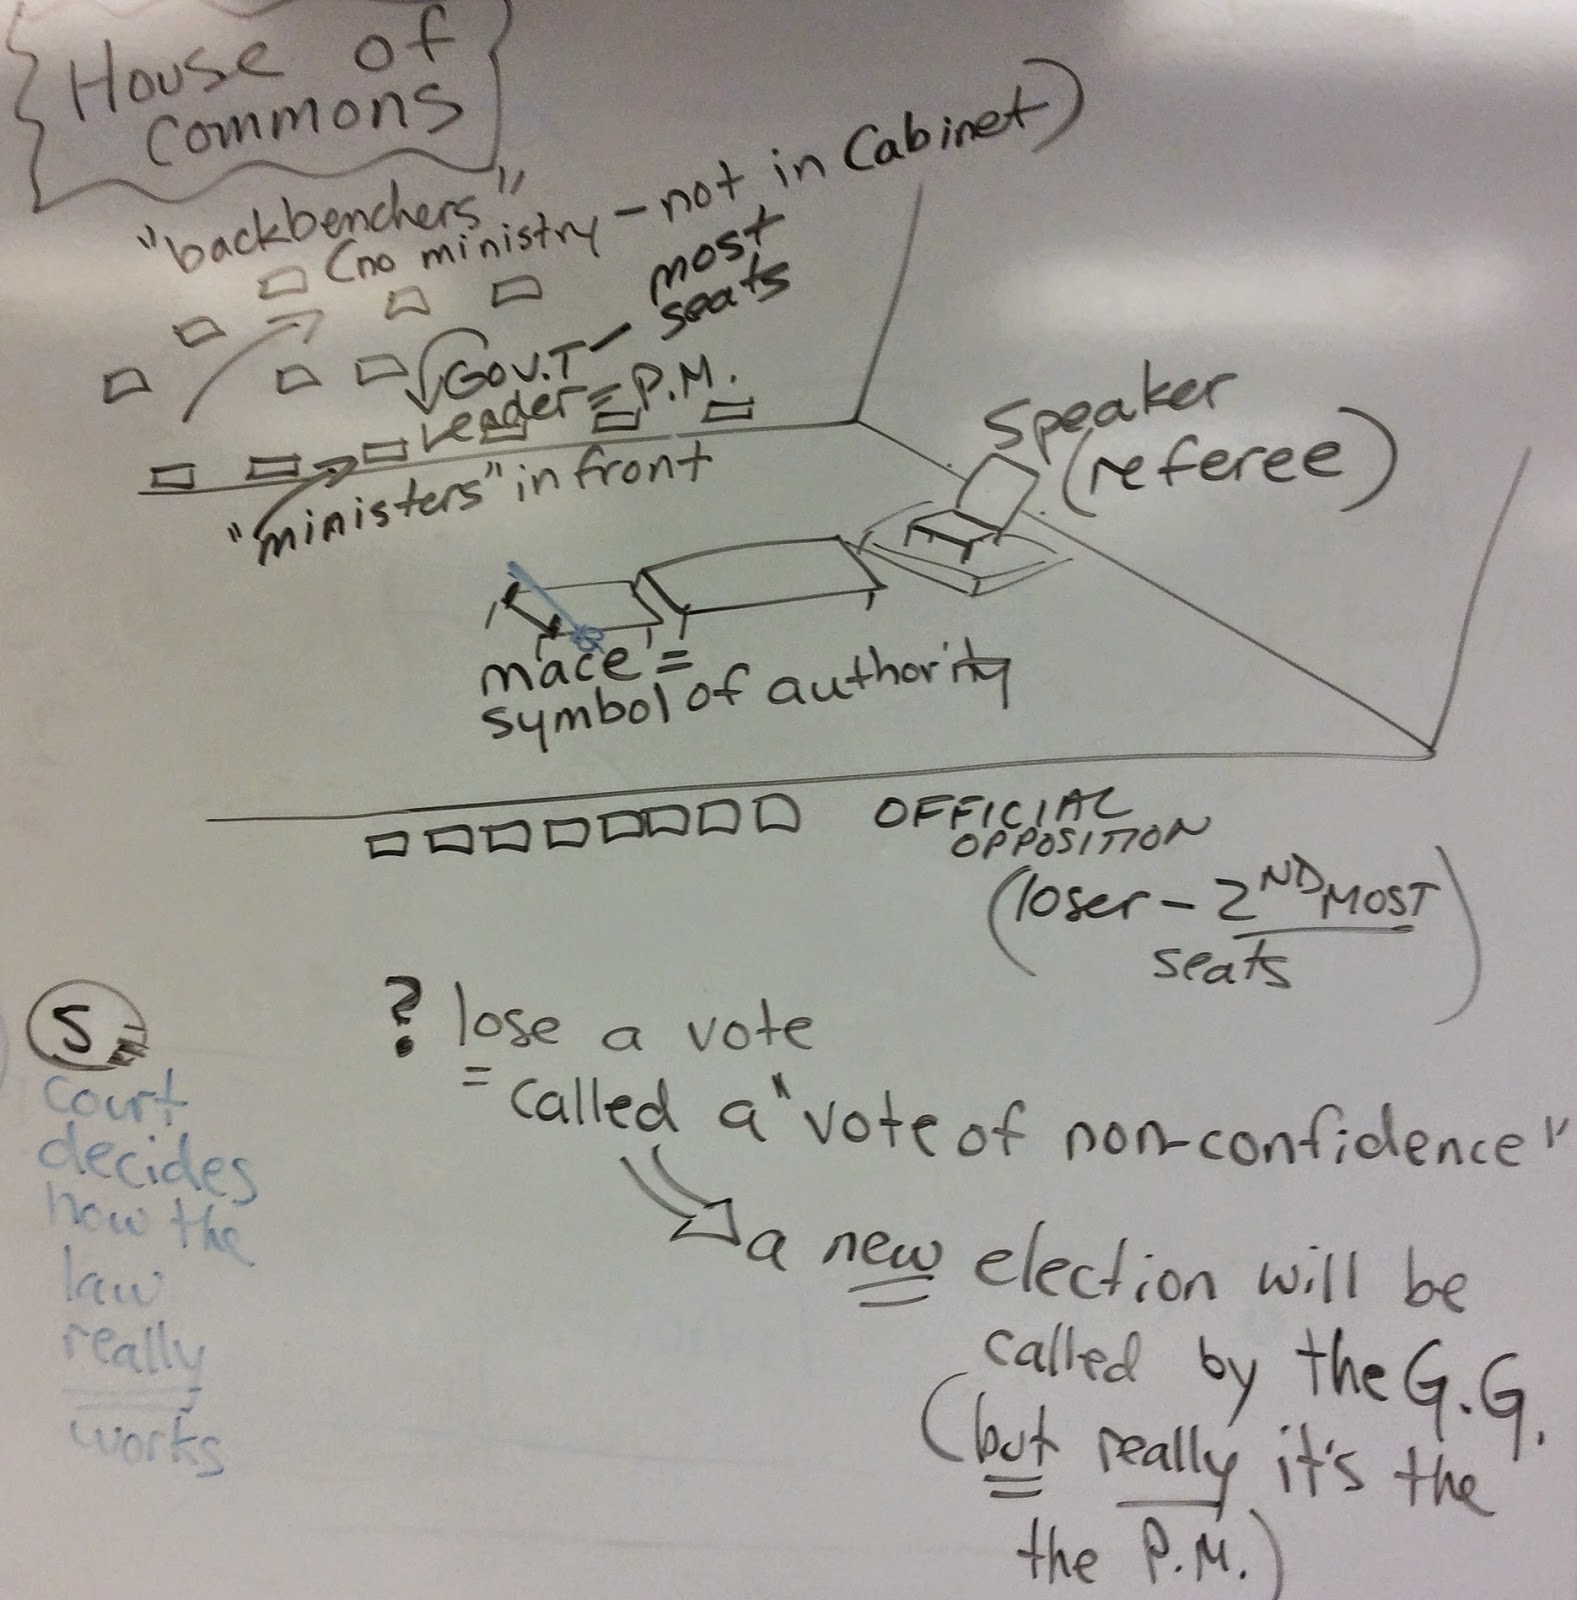 House of
Commons
"backbenchers"
(no ministry - not in Cabinet)
most
seats
Gov.T -
Leader = P.M.
"ministers" in front
Speaker
(referee)
mace =
symbol of authority
OFFICIAL
OPPOSITION
(loser - 2ND MOST
seats)
5
court
decides
how the
law
really
works
? lose a vote
= called a "vote of non-confidence"
a new election will be
called by the G.G.
(but really it's the
the P.M.)